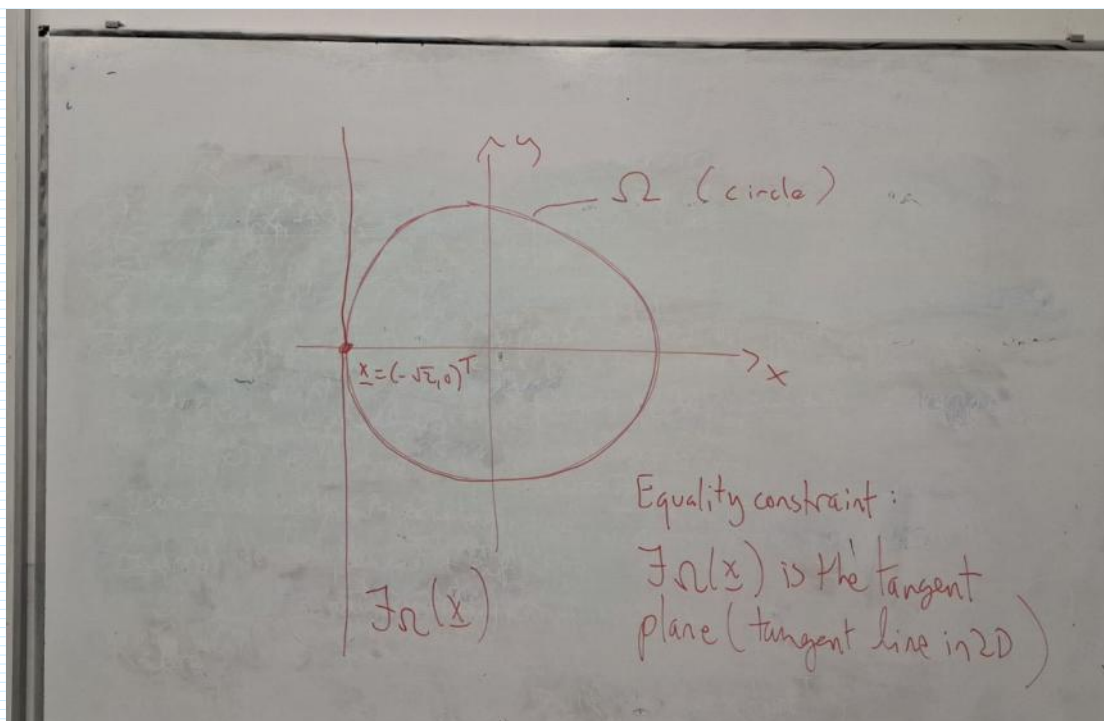 y
Ω (circle)
x
x̲ = (-√2, 0)ᵀ
Equality constraint :
ℱΩ(x̲) is the tangent
plane ( tangent line in 2D )
ℱΩ(x̲)